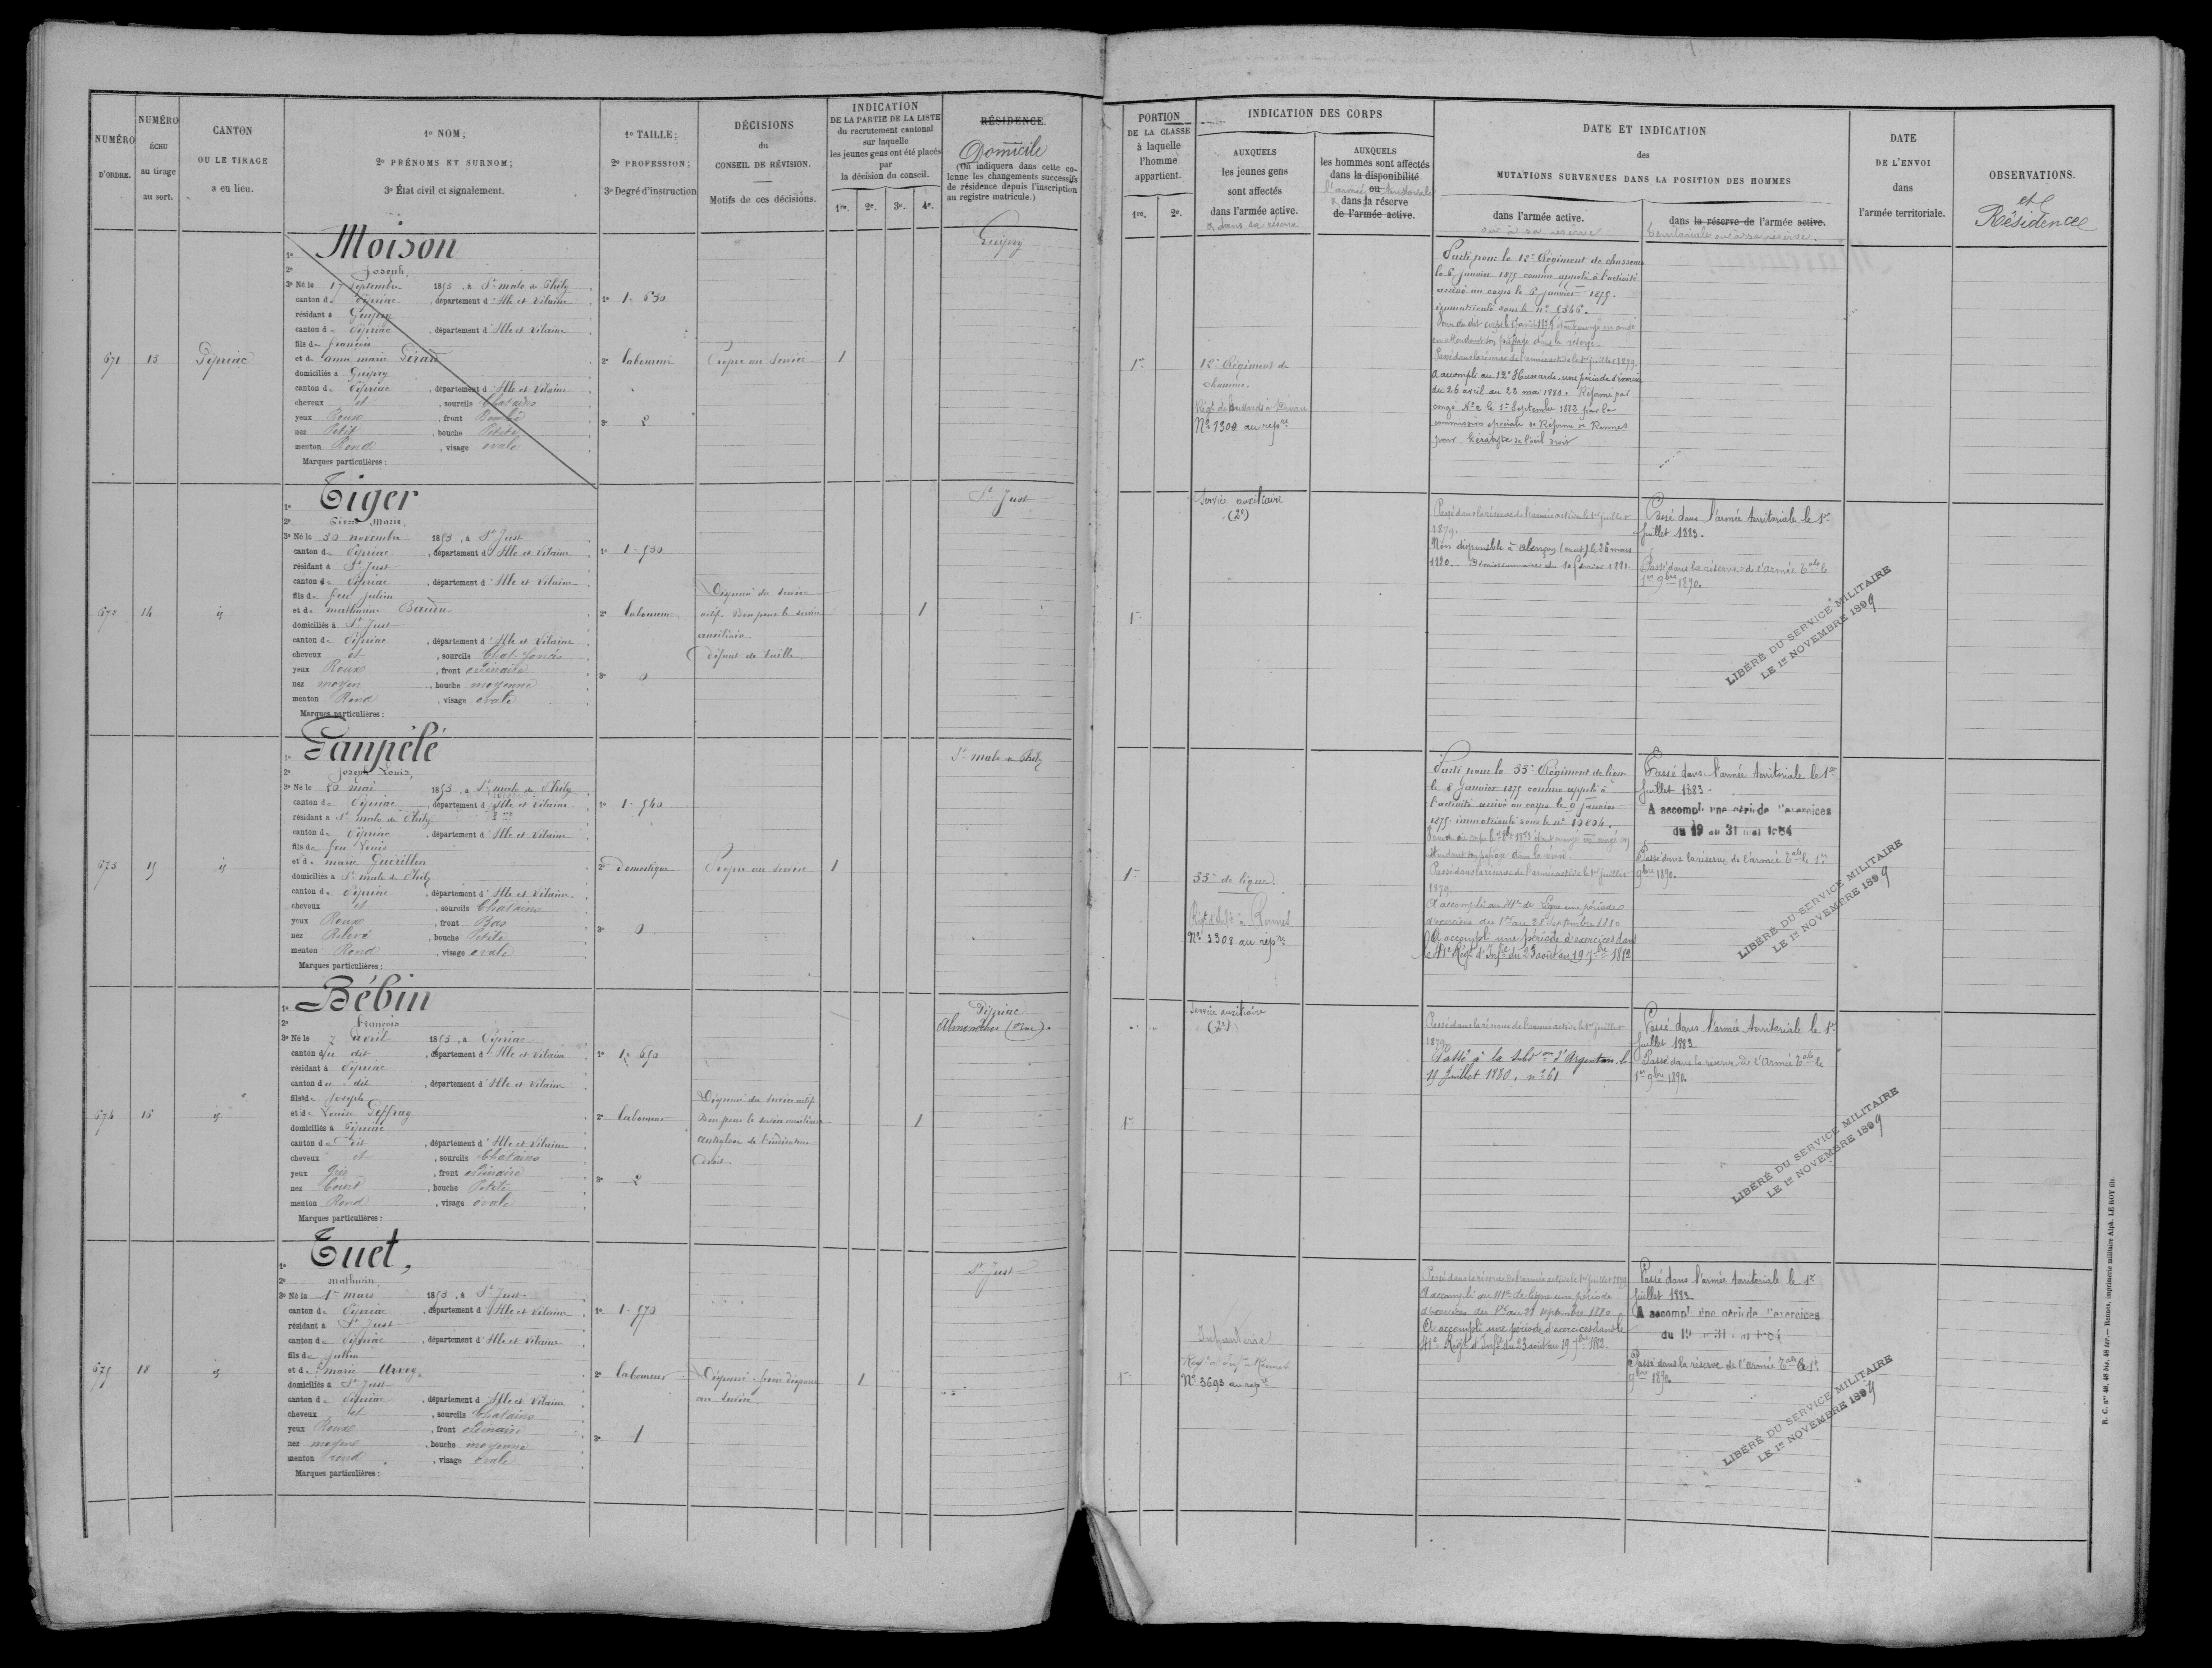 NUMÉRO
D'ORDRE.
NUMÉRO
ÉCHU
au tirage
au sort.
CANTON
OU LE TIRAGE
a eu lieu.
1º NOM;
2º PRÉNOMS ET SURNOM;
3º État civil et signalement.
1º TAILLE;
2º PROFESSION;
3º Degré d'instruction
DÉCISIONS
du
CONSEIL DE RÉVISION.
Motifs de ces décisions.
INDICATION
DE LA PARTIE DE LA LISTE
du recrutement cantonal
sur laquelle
les jeunes gens ont été placés
par
la décision du conseil.
1re. 2e. 3e. 4e.
RÉSIDENCE.
Domicile
(On indiquera dans cette co-
lonne les changements successifs
de résidence depuis l'inscription
au registre matricule.)
671
13
Pipriac
Moison
Joseph,
3º Né le 17 septembre 1853, à St malo de Phily
canton de Pipriac, département d'Ille et Vilaine
résidant à Guipry
canton de Pipriac, département d'Ille et Vilaine
fils de françois
et de anne marie
domiciliés à Guipry
canton de Pipriac, département d'Ille et Vilaine
cheveux et, sourcils Chatains
yeux Roux, front Bombé
nez Petit, bouche Petite
menton Rond, visage ovale
Marques particulières:
1º 1. 630
2º laboureur
3º 2
Propre au Service
1
Guipry
672
14
id
Tiger
Pierre Marie,
3º Né le 30 novembre 1853, à St Just
canton de Pipriac, département d'Ille et Vilaine
résidant à St Just
canton de Pipriac, département d'Ille et Vilaine
fils de feu julien
et de mathurine
domiciliés à St Just
canton de Pipriac, département d'Ille et Vilaine
cheveux et, sourcils Chat. foncés
yeux Roux, front ordinaire
nez moyen, bouche moyenne
menton Rond, visage ovale
Marques particulières:
1º 1. 530
2º laboureur
3º 0
Dispensé du service
actif. Bon pour le service
auxiliaire.
Défaut de taille.
1
St Just
673
15
id
Panpélé
Joseph Louis,
3º Né le 20 mai 1853, à St malo de Phily
canton de Pipriac, département d'Ille et Vilaine
résidant à St malo de Phily
canton de Pipriac, département d'Ille et Vilaine
fils de feu Louis
et de marie Guérillon
domiciliés à St malo de Phily
canton de Pipriac, département d'Ille et Vilaine
cheveux et, sourcils Chatains
yeux Roux, front Bas
nez Relevé, bouche Petite
menton Rond, visage ovale
Marques particulières:
1º 1. 540
2º domestique
3º 0
Propre au service
1
St malo de Phily
674
16
id
Bébin
François
3º Né le 7 avril 1853, à Pipriac
canton du dit, département d'Ille et Vilaine
résidant à Pipriac
canton du dit, département d'Ille et Vilaine
fils de Joseph
et de Louise
domiciliés à Pipriac
canton du dit, département d'Ille et Vilaine
cheveux et, sourcils Chatains
yeux Gris, front ordinaire
nez Court, bouche Petite
menton Rond, visage ovale
Marques particulières:
1º 1. 650
2º laboureur
3º 2
Dispensé du service actif
Bon pour le service auxiliaire
ankylose de l'indicateur
droit.
1
Pipriac
(Orne).
675
18
id
Tuet,
Mathurin,
3º Né le 1er mars 1853, à St Just
canton de Pipriac, département d'Ille et Vilaine
résidant à St Just
canton de Pipriac, département d'Ille et Vilaine
fils de julien
et de marie Urvoy
domiciliés à St Just
canton de Pipriac, département d'Ille et Vilaine
cheveux et, sourcils Chatains
yeux Roux, front ordinaire
nez moyen, bouche moyenne
menton rond, visage ovale
Marques particulières:
1º 1. 570
2º laboureur
3º 1
Dispensé
au service.
1
St Just
PORTION
DE LA CLASSE
à laquelle
l'homme
appartient.
1re. 2e.
INDICATION DES CORPS
AUXQUELS
les jeunes gens
sont affectés
dans l'armée active.
& dans sa réserve
AUXQUELS
les hommes sont affectés
dans la disponibilité
ou
l'armée territoriale
dans la réserve
de l'armée active.
DATE ET INDICATION
des
MUTATIONS SURVENUES DANS LA POSITION DES HOMMES
dans l'armée active.
ou à sa réserve
dans la réserve de l'armée active.
territoriale ou à sa réserve.
DATE
DE L'ENVOI
dans
l'armée territoriale.
OBSERVATIONS.
et
Résidence
1re
12e Régiment de
chasseurs.
Nº 1300 au repre
Parti pour le 12e Régiment de chasseurs
le 5 janvier 1875 comme appelé à l'activité
arrivé au corps le 6 janvier 1875.
immatriculé sous le nº
en attendant son passage dans la réserve.
Passé dans la réserve de l'armée active le 1er juillet 1879.
A accompli au 12e Hussards, une période d'exercices
du 26 avril au 22 mai 1880. Réformé par
congé Nº 2 le 1er Septembre 1882 par la
commission spéciale de Réforme de Rennes
pour Kératite de l'œil droit
1re
Service auxiliaire
(2e)
Passé dans la réserve de l'armée active le 1er juillet
1879.
Non disponible à Alençon le 26 mars
1880. Démissionnaire du 10 février 1881.
Passé dans l'armée territoriale le 1er
Juillet 1883.
Passé dans la réserve de l'armée Tale le
1er 9bre 1890.
LIBÉRÉ DU SERVICE MILITAIRE
LE 1er NOVEMBRE 1899
1re
33e de ligne
Régt d'Infie à Rennes
Nº 3308 au repre
Parti pour le 33e Régiment de ligne
le 8 janvier 1875 comme appelé à
l'activité arrivé au corps le 9 janvier
1875 immatriculé sous le nº
attendant son passage dans la réserve.
Passé dans la réserve de l'armée active le 1er juillet
1879.
A accompli au 41e de ligne une période
d'exercices du 1er au 28 septembre 1880
A accompli une période d'exercices dans
le 41e Régt d'Infie du 23 août au 19 7bre 1882
Passé dans l'armée territoriale le 1er
Juillet 1883.
A accompli une période d'exercices
du 19 au 31 mai 1884
Passé dans la réserve de l'armée Tale le 1er
9bre 1890.
LIBÉRÉ DU SERVICE MILITAIRE
LE 1er NOVEMBRE 1899
1re
Service auxiliaire
(2e)
Passé dans la réserve de l'armée active le 1er juillet
1879
Passé à la Subdon d'Argentan le
18 Juillet 1880, nº 61
Passé dans l'armée territoriale le 1er
Juillet 1883
Passé dans la réserve de l'Armée Tale le
1er 9bre 1890
LIBÉRÉ DU SERVICE MILITAIRE
LE 1er NOVEMBRE 1899
1re
Infanterie
Régt d'Infie Rennes
Nº 3693 au repre
Passé dans la réserve de l'armée active le 1er juillet 1879
A accompli au 41e de ligne une période
d'exercices du 1er au 28 septembre 1880
A accompli une période d'exercices dans le
41e Régt d'Infie du 23 août au 19 7bre 1882.
Passé dans l'armée territoriale le 1er
Juillet 1883
A accompli une période d'exercices
du 19 au 31 mai 1884
Passé dans la réserve de l'armée Tale le 1er
9bre 1890
LIBÉRÉ DU SERVICE MILITAIRE
LE 1er NOVEMBRE 1899
R. C. nos 48, 48 bis, 48 ter.— Rennes, imprimerie militaire Alph. LE ROY fils.